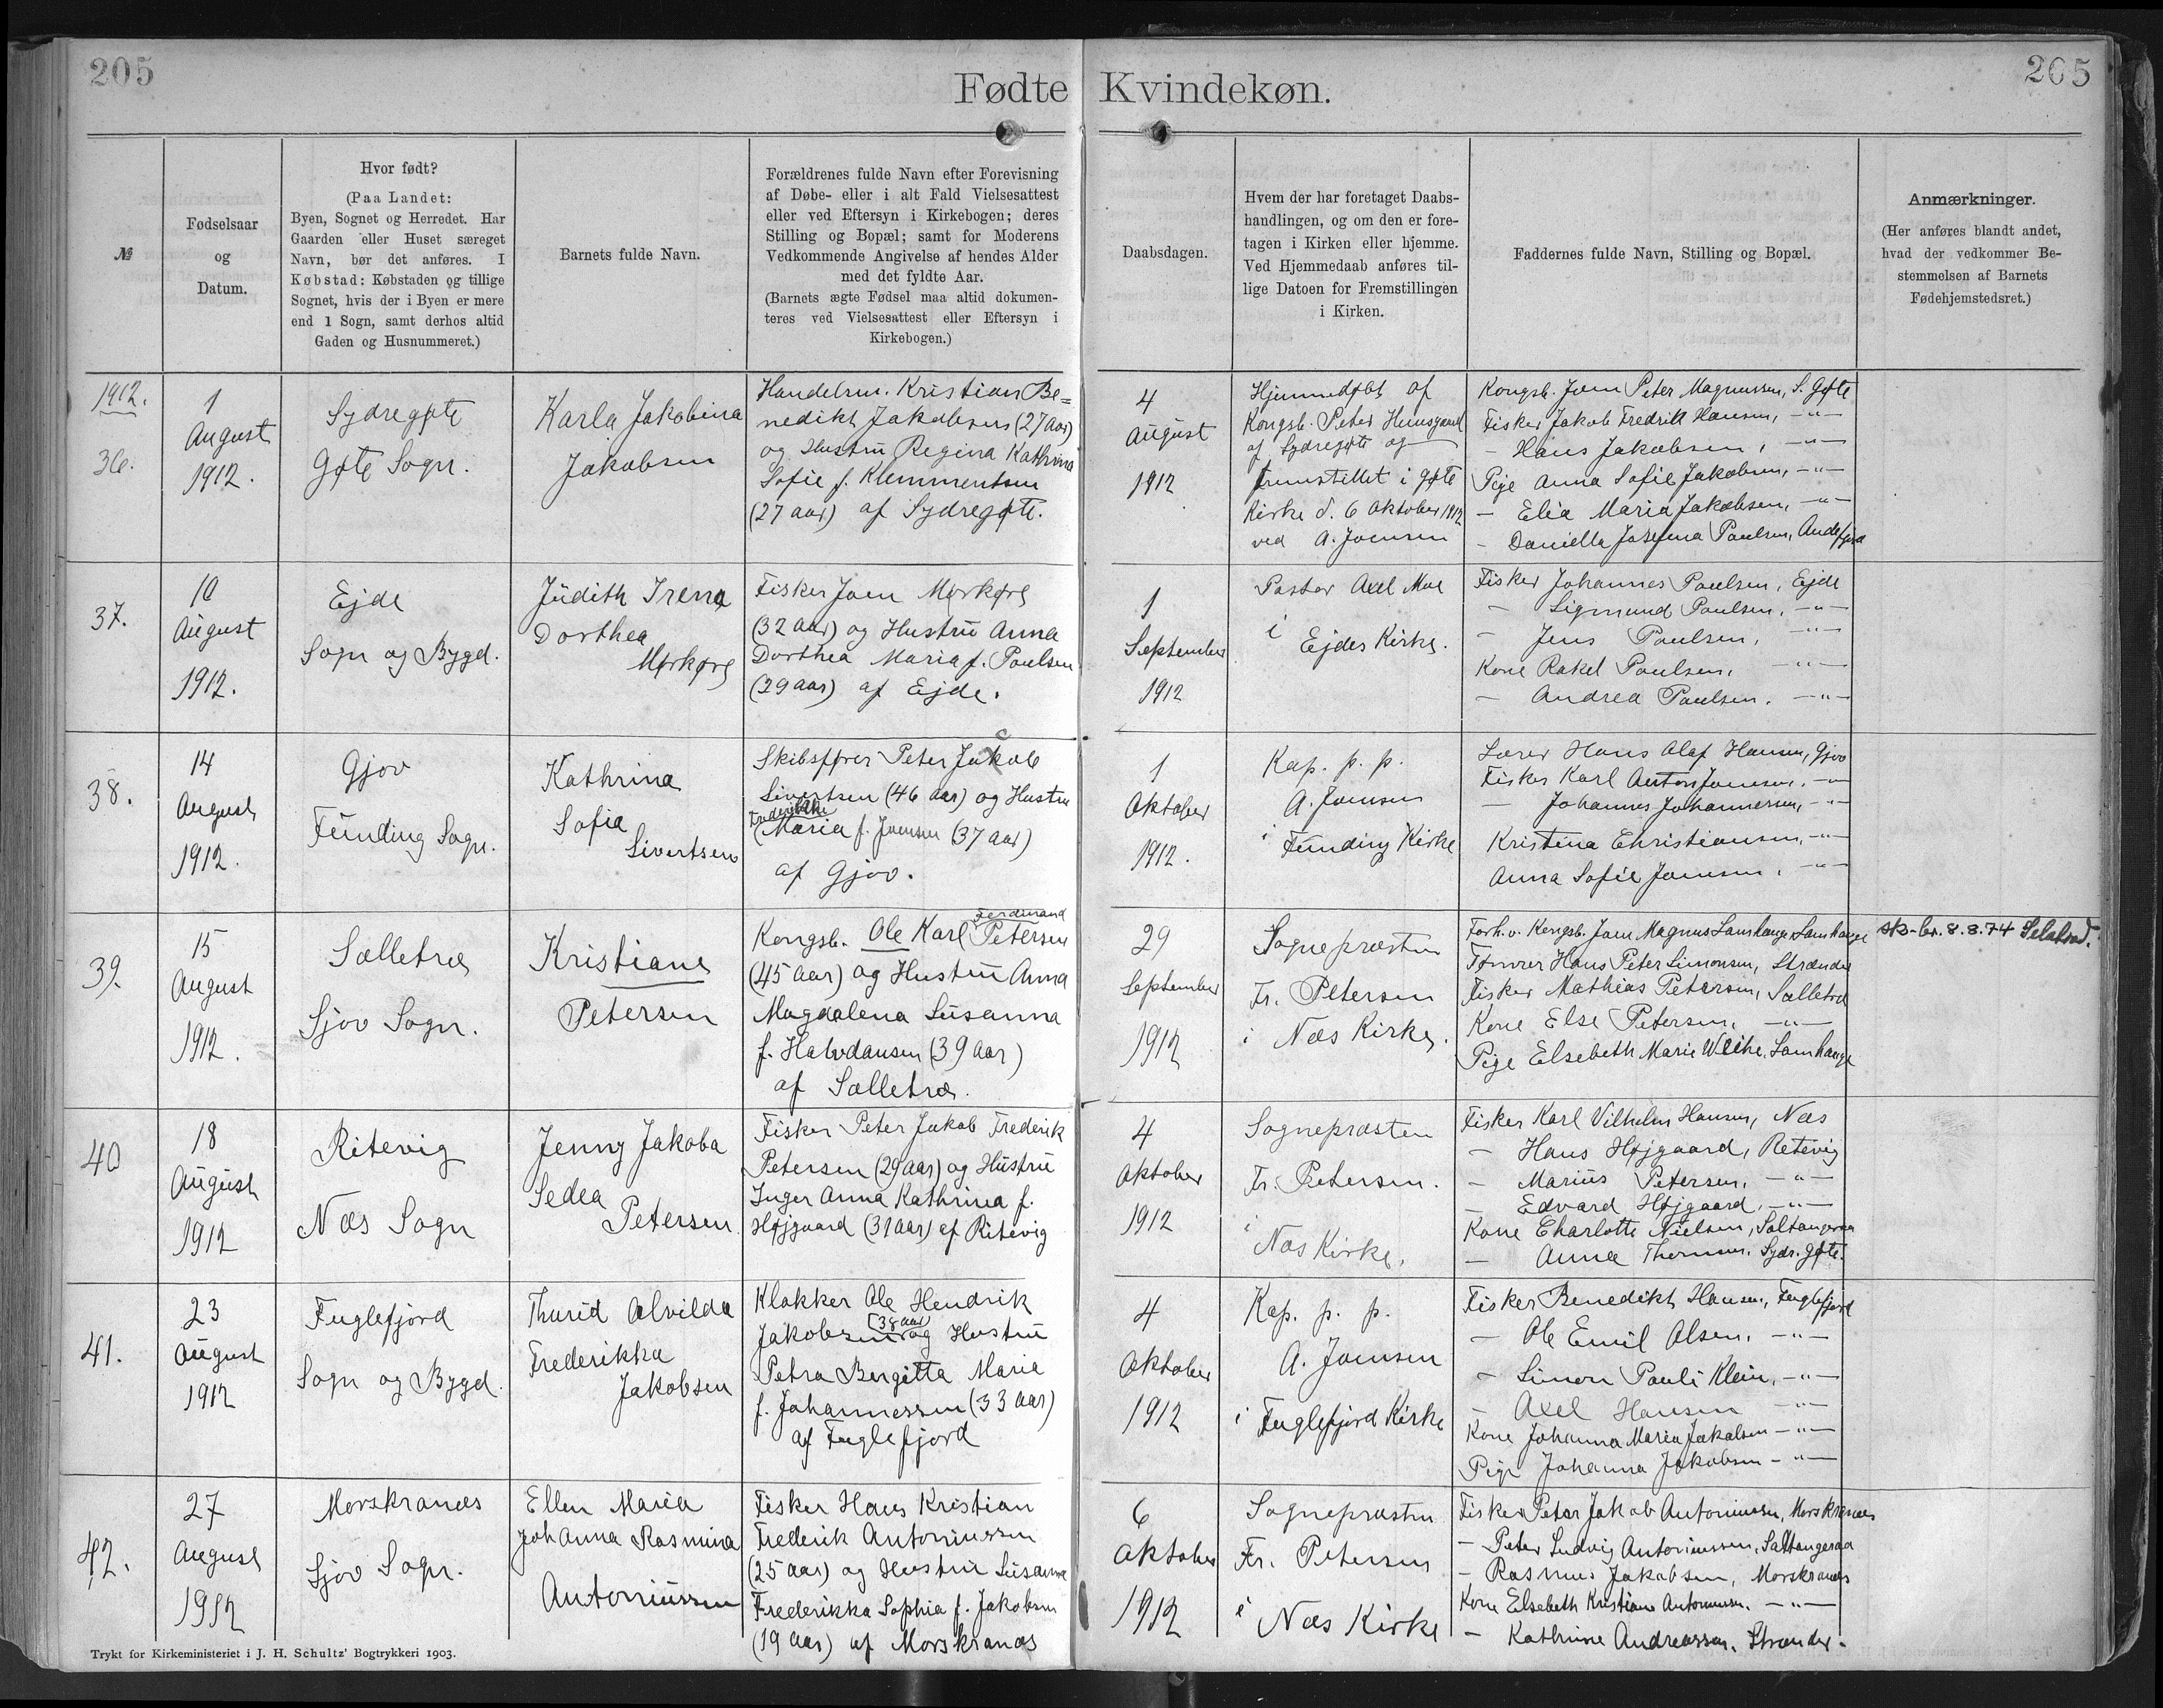 205
205
Fødte Kvindekøn.
№
Fødselsaar
og
Datum.
Hvor født?
(Paa Landet:
Byen, Sognet og Herredet. Har
Gaarden eller Huset særeget
Navn, bør det anføres. I
Købstad: Købstaden og tillige
Sognet, hvis der i Byen er mere
end 1 Sogn, samt derhos altid
Gaden og Husnummeret.)
Barnets fulde Navn.
Forældrenes fulde Navn efter Forevisning
af Døbe- eller i alt Fald Vielsesattest
eller ved Eftersyn i Kirkebogen; deres
Stilling og Bopæl; samt for Moderens
Vedkommende Angivelse af hendes Alder
med det fyldte Aar.
(Barnets ægte Fødsel maa altid dokumen-
teres ved Vielsesattest eller Eftersyn i
Kirkebogen.)
Daabsdagen.
Hvem der har foretaget Daabs-
handlingen, og om den er fore-
tagen i Kirken eller hjemme.
Ved Hjemmedaab anføres til-
lige Datoen for Fremstillingen
i Kirken.
Faddernes fulde Navn, Stilling og Bopæl.
Anmærkninger.
(Her anføres blandt andet,
hvad der vedkommer Be-
stemmelsen af Barnets
Fødehjemstedsret.)
1912.
36.
1
August
1912.
Sydregøte
Gøte Sogn.
Karla Jakobina
Jakobsen
Handelsm. Kristian Be=
nedikt Jakobsen (27 aar)
og Hustru Regina Kathrina
Sofie f. Klemmentsen
(27 aar) af Sydregøte.
4
August
1912
Hjemmedøbt af
Kongsb. Peter
af Sydregøte og
fremstillet i Gøte
Kirke d. 6 Oktober 1912
ved A. Joensen
Kongsb. Joen Peter Magnussen, S. Gøte
Fisker Jakob Fredrik Hansen, -"-
- Hans Jakobsen, -"-
Pige Anna Sofie Jakobsen, -"-
- Elia Maria Jakobsen, -"-
- Daniella Josefina Poulsen, Andefjord
37.
10
August
1912.
Ejde
Sogn og Bygd.
Judith Irena
Dorthea
Mørkøre
Fisker Joen Mørkøre
(32 aar) og Hustru Anna
Dorthea Maria f. Poulsen
(29 aar) af Ejde.
1
September
1912
Pastor Axel Moe
i Ejdes Kirke.
Fisker Johannes Poulsen, Ejde
- Sigmund Poulsen, -"-
- Jens Poulsen, -"-
Kone Rakel Poulsen, -"-
- Andrea Poulsen. -"-
38.
14
August
1912.
Gjov
Funding Sogn.
Kathrina
Sofia
Sivertsen
c
Skibsfører Peter Jakob
Sivertsen (46 aar) og Hustru
Frederikke
Maria f. Joensen (37 aar)
af Gjov.
1
Oktober
1912.
Kap. p. p.
A. Joensen
i Funding Kirke
Lærer Hans Olaf Hansen, Gjov
Fisker Karl Anton Joensen, -"-
- Johannes Johannesen, -"-
Kristina Christiansen, -"-
Anna Sofie Joensen, -"-
39.
15
August
1912.
Sælletræ
Sjov Sogn.
Kristiane
Petersen
Ferdinand
Kongsb. Ole Karl Petersen
(45 aar) og Hustru Anna
Magdalena Susanna
f. Halvdansen (39 aar)
af Sælletræ.
29
September
1912
Sognepræsten
Fr. Petersen
i Næs Kirke.
Forh.v. Kongsb. Joen Magnus Lamhauge, Lamhauge
Tømrer Hans Peter Simonsen, Strænder
Fisker Mathias Petersen, Sælletræ
Kone Else Petersen, -"-
Pige Elsebeth Marie Weihe, Lamhauge
8.8.74 Selatrad.
40
18
August
1912
Ritevig
Næs Sogn
Jenny Jakoba
Sedea
Petersen
Fisker Peter Jakob Frederik
Petersen (29 aar) og Hustru
Inger Anna Kathrina f.
Højgaard (31 aar) af Ritevig
4
Oktober
1912
Sognepræsten
Fr. Petersen.
i
Næs Kirke.
Fisker Karl Vilhelm Hansen, Næs
- Hans Højgaard, Ritevig
- Marius Petersen, -"-
- Edvard Højgaard, -"-
Kone Charlotte Nielsen, Saltangeraa
- Anna Thomsen, Sydr. Gøte.
41.
23
August
1912
Fuglefjord
Sogn og Bygd.
Thurid Alvilda
Frederikka
Jakobsen
Klokker Ole Hendrik
(38 aar)
Jakobsen og Hustru
Petra Bergitta Maria
f. Johannessen (33 aar)
af Fuglefjord
4
Oktober
1912
Kap. p. p.
A. Joensen
i Fuglefjord Kirke
Fisker Benedikt Hansen, Fuglefjord
- Ole Emil Olsen, -"-
- Simon Pauli Klein, -"-
- Axel Hansen -"-
Kone Johanna Maria Jakobsen -"-
Pige Johanna Jakobsen -"-
42.
27
August
1912
Morskranæs
Sjov Sogn.
Ellen Maria
Johanna Rasmina
Antoniussen
Fisker Hans Kristian
Frederik Antoniussen
(25 aar) og Hustru Susanna
Frederikka Sophia f. Jakobsen
(19 aar) af Morskranæs
6
Oktober
1912
Sognepræsten
Fr. Petersen
i Næs Kirke
Fisker Peter Jakob Antoniussen, Morskranæs
- Peter Ludvig Antoniussen, Saltangeraa
- Rasmus Jakobsen, Morskranæs
Kone Elsebeth Kristiane Antoniussen. -"-
- Kathrine Andreassen, Strænder.
Trykt for Kirkeministeriet i J. H. Schultz' Bogtrykkeri 1903.